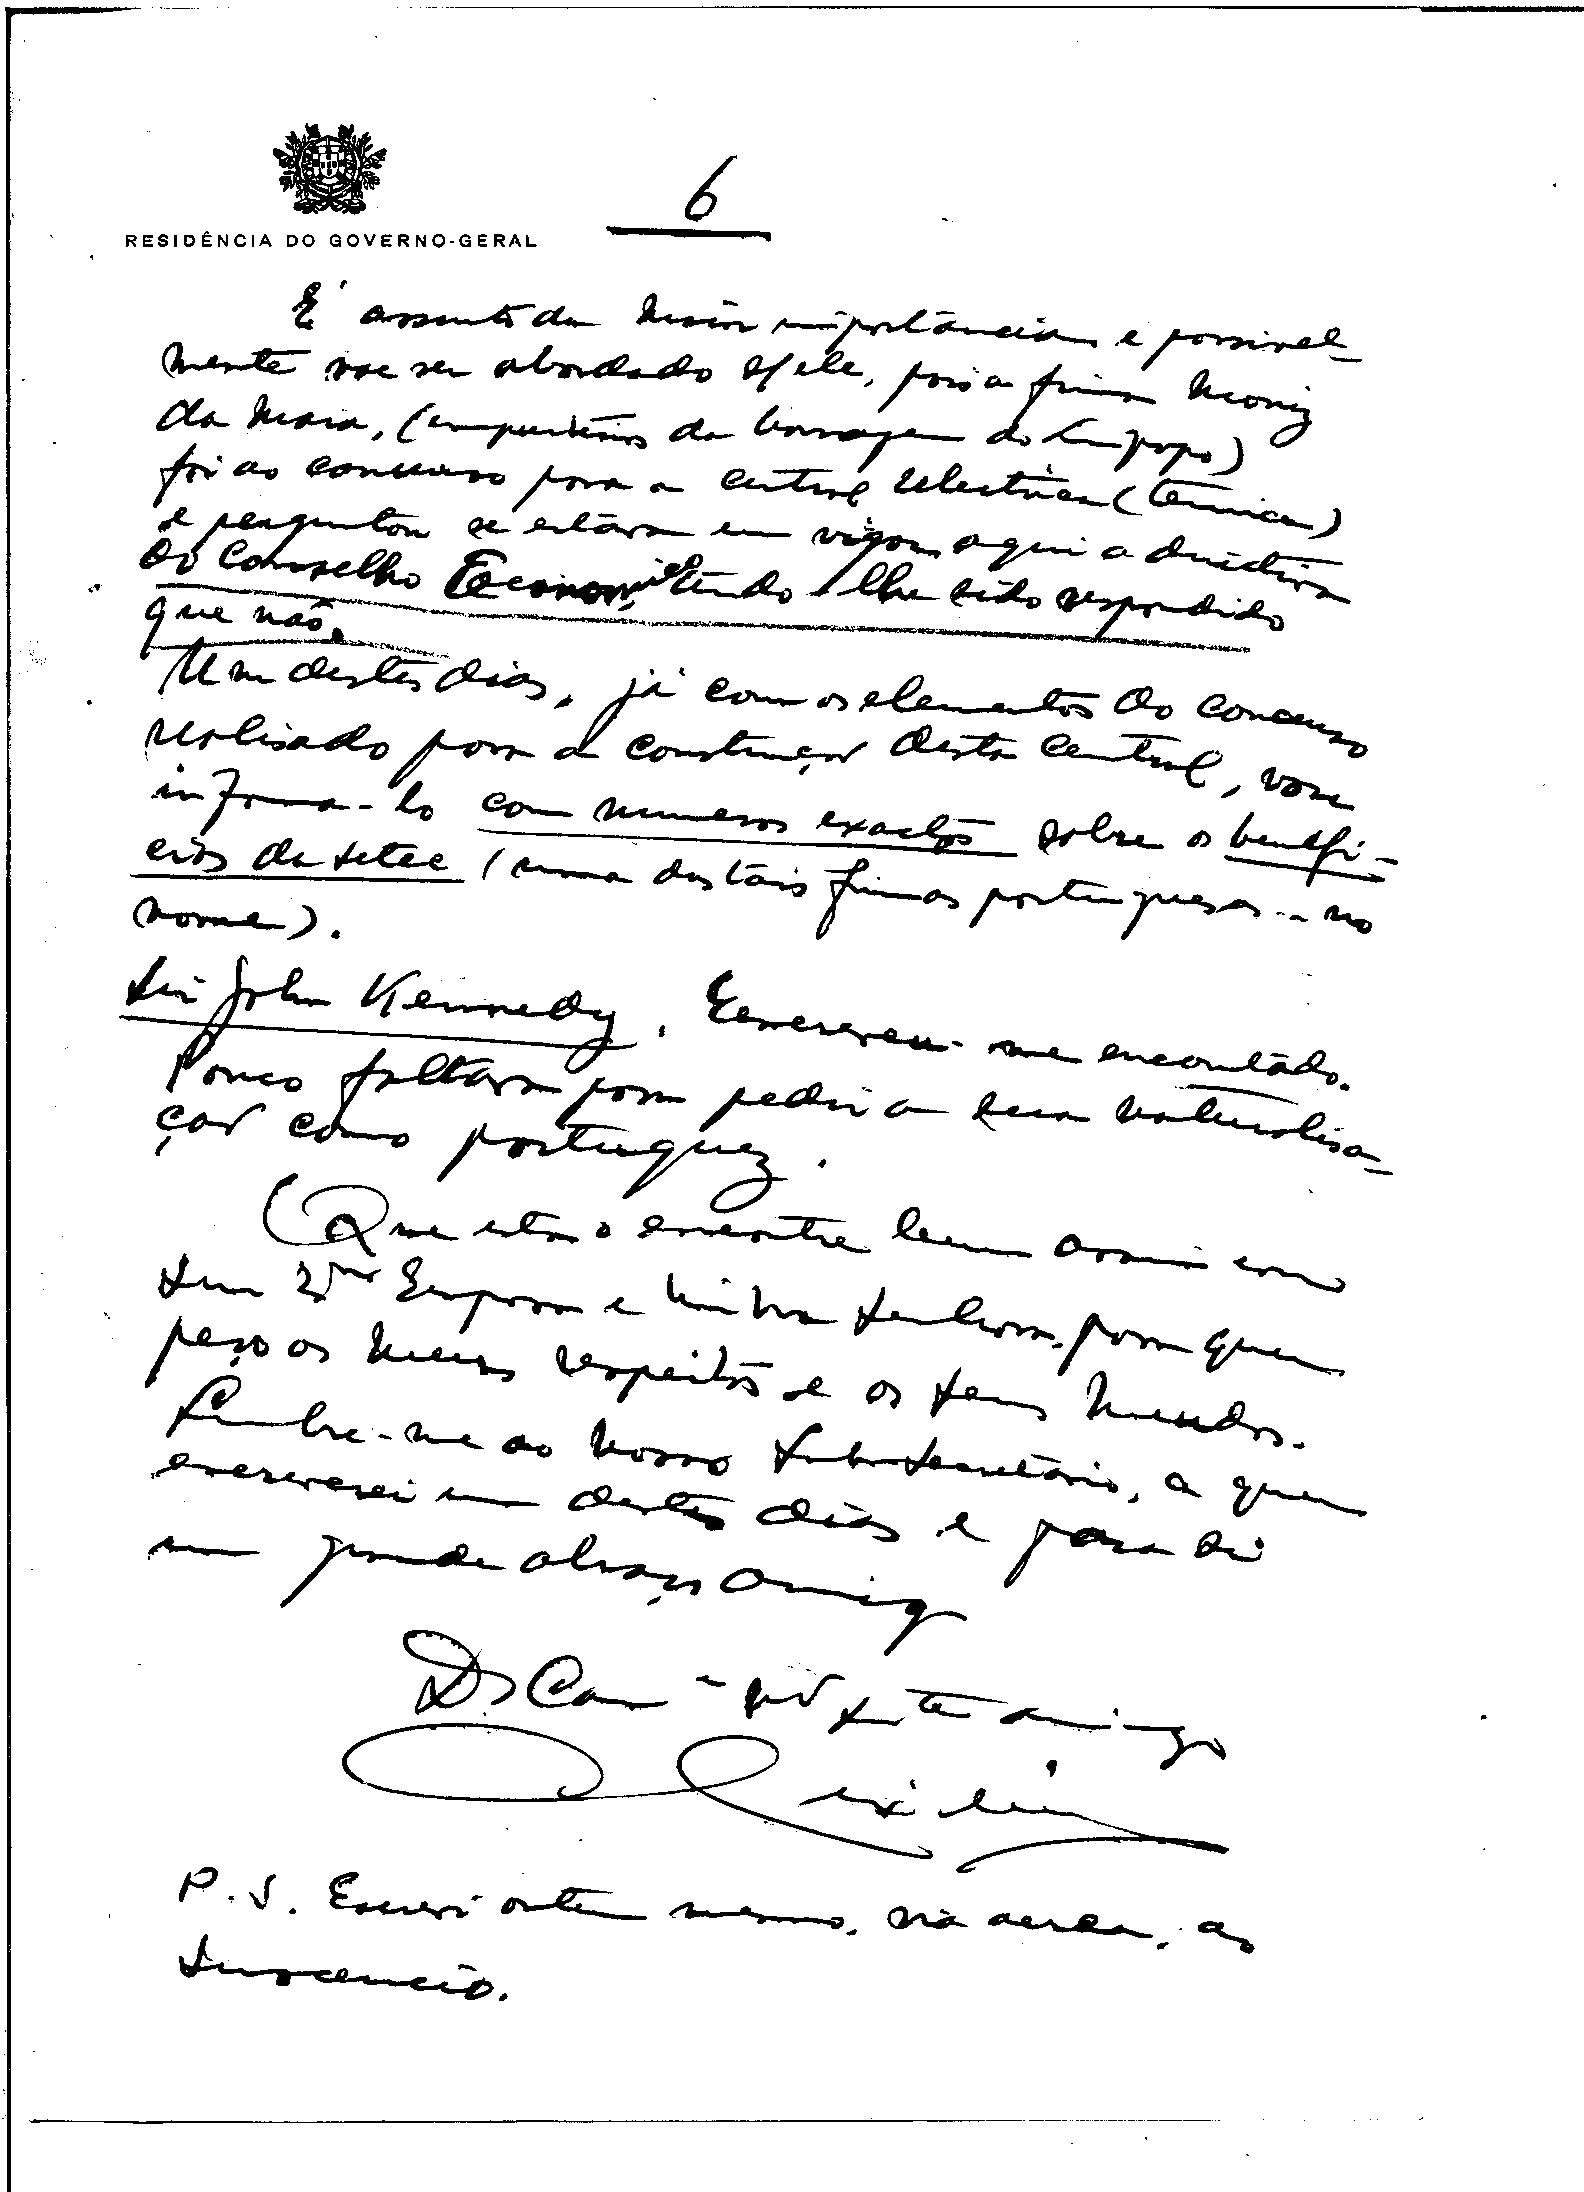 6
RESIDÊNCIA DO GOVERNO-GERAL
É assunto da maior importância e possivel-
mente vae ser abordado p/ ele, pois a firma Moniz
da Maia, (empreiteiros da barragem do Limpopo)
foi ao concurso para a central electrica (termica)
e perguntou se estava em vigor aqui a directiva
do Conselho Economico tendo-lhe sido respondido
que não.
Um destes dias, já com os elementos do concurso
realisado para a construção desta central, vou
informa-lo com numeros exactos sobre os benefi-
cios da setec (uma das tais firmas portuguesas... no
nome).
Sir John Kennedy. Escreveu-me encantado.
Pouco faltava para pedir a sua naturalisa-
ção como portuguez.
Que esta o encontre bem assim como
sua Exma Esposa e minha Senhora, para quem
peço os meus respeitos e os seus miudos.
Lembre-me ao nosso Subsecretário, a quem
escreverei um destes dias e para si
um grande abraço amigo
Do Cam e amigo
P.S. Escrevi ontem mesmo, via aerea, ao
Inocencio.